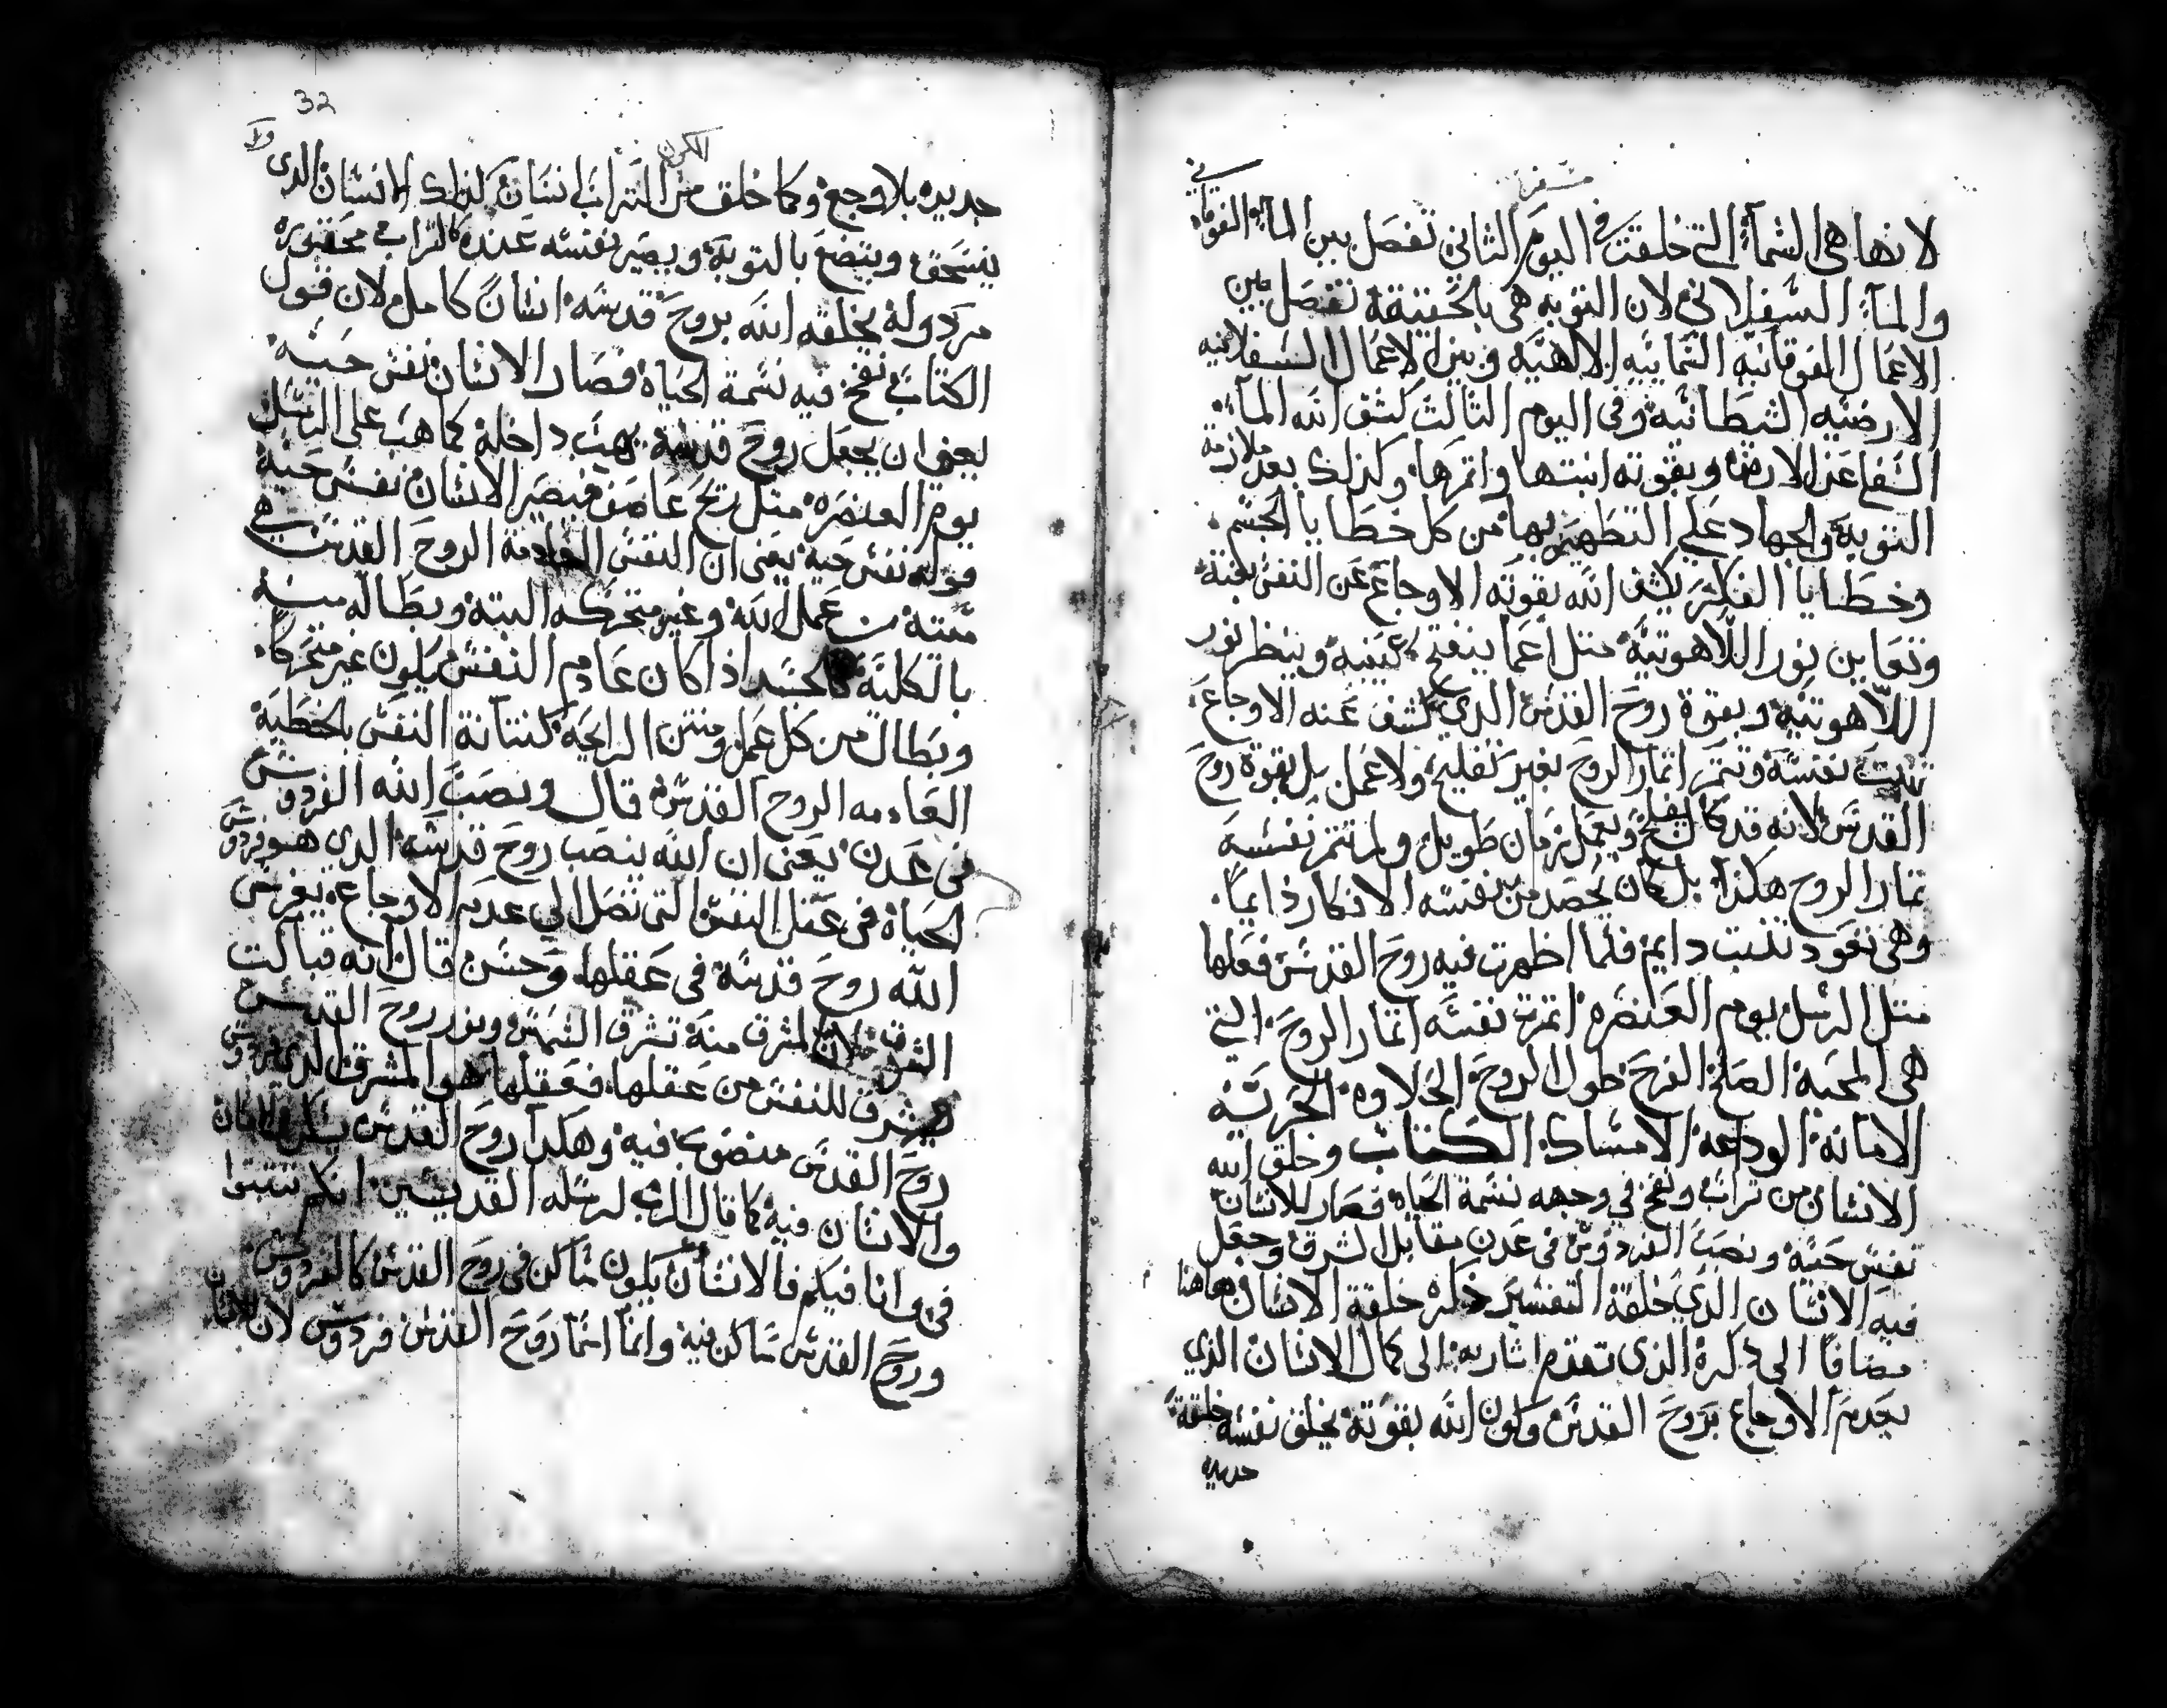 لانها هى السمآء التى خلقت فى اليوم الثانى تفصل بين المآء الفوقانى
والمآء السفلانى لان التوبه هى بالحقيقة تفصل بين
الاعمال الفوقانيه السمايية الالاهيه وبين الاعمال السفلانيه
الارضيه الشيطانيه وفى اليوم التالت كشف الله المآء
السفلى عن الارض وبقوته انبتها واتمرها وكذلك بعد ملازمة
التوبة والجهاد على التطهير بها من كل خطايا الجسم
وخطايا الفكر يكشف الله بقوته الاوجاع عن النفس
وتعاين نور اللاهوتية متل اعما ينفتح عينيه وينظر نور
اللاهوتيه وبقوة روح القدس الدى كشف عنه الاوجاع
تنبت نفسه وتتمر اتمار الروح بغير تفليح ولا عمل بل بقوة روح
القدس لانه قد كان يفلح ويعمل زمان طويل ولم تتمر نفسه
تمار الروح هكذا بل كان يحصد من نفسه الافكار دايماً
وهى تعود تنبت دايم فلما اظهرت فيه روح القدس فعلها
متل الرسل يوم العنصره اتمرت نفسه اتمار الروح التى
هى المحبة الصلح الفرح طول الروح الحلاوه الخيريه
الامانه الوداعه الامساك الكتاب وخلق الله
الانسان من تراب ونفخ فى وجهه نسمة الحياه فصار للانسان
نفس حيه ونصب الفردوس فى عدن مقابل الشرق وجعل
فيه الانسان الدى خلقة التفسير دكره خلقة الانسان هاهنا
مضافاً الى دكرة الذى تقدم اشاربه الى كمال الانسان الذي
بعدم الاوجاع بروح القدس وكون الله بقوته يخلق نفسه خلقة
جديده
32
جديده بلا وجع وكما خلق من التراب انسان كذلك الانسان الدى
ينسحق ويتضع بالتوبة ويصير نفسه عنده كالتراب محقوره
مردوله يخلقه الله بروح قدسه انسانً كامل لان قول
الكتاب نفخ فيه نسمة الحياه فصار الانسان نفس حيه
يعنى ان يجعل روح قدسه يهب داخله كما هب على الرسل
يوم العنصره متل ريح عاصف فيصير الانسان نفس حيه
قوله نفس حيه يعنى ان النفس العادمة الروح القدس هى
ميته من عمل الله وغير متحركه البته وبطاله ميته
بالكلية كالجسد اذا كان عادم النفس يكون غير متحركاً
وبطال من كل عمل ومنتن الرايحة كنتانة النفس بالخطية
العادمه الروح القدس قال ونصب الله الفردوس
فى عدن يعنى ان الله ينصب روح قدسه الدى هو فردوس
الحياه فى عقل النفس التى تصل الى عدم الاوجاع يغرس
الله روح قدسه فى عقلها وحسن قال انه قبالت
الشرق لان المشرق منه تشرق الشمس ونور روح القدس
يشرق للنفس من عقلها فعقلها هو المشرق الدى فردوس
روح القدس منصوب فيه وهكدا روح القدس يسكن فى الانسان
والانسان فيه كما قال الرب لرسله القديسين انكم تتبتوا
فى وانا فيكم فالانسان يكون ساكن فى روح القدس كالفردوس
وروح القدس ساكن فيه وانما اسما روح القدس فردوس لان الانسان